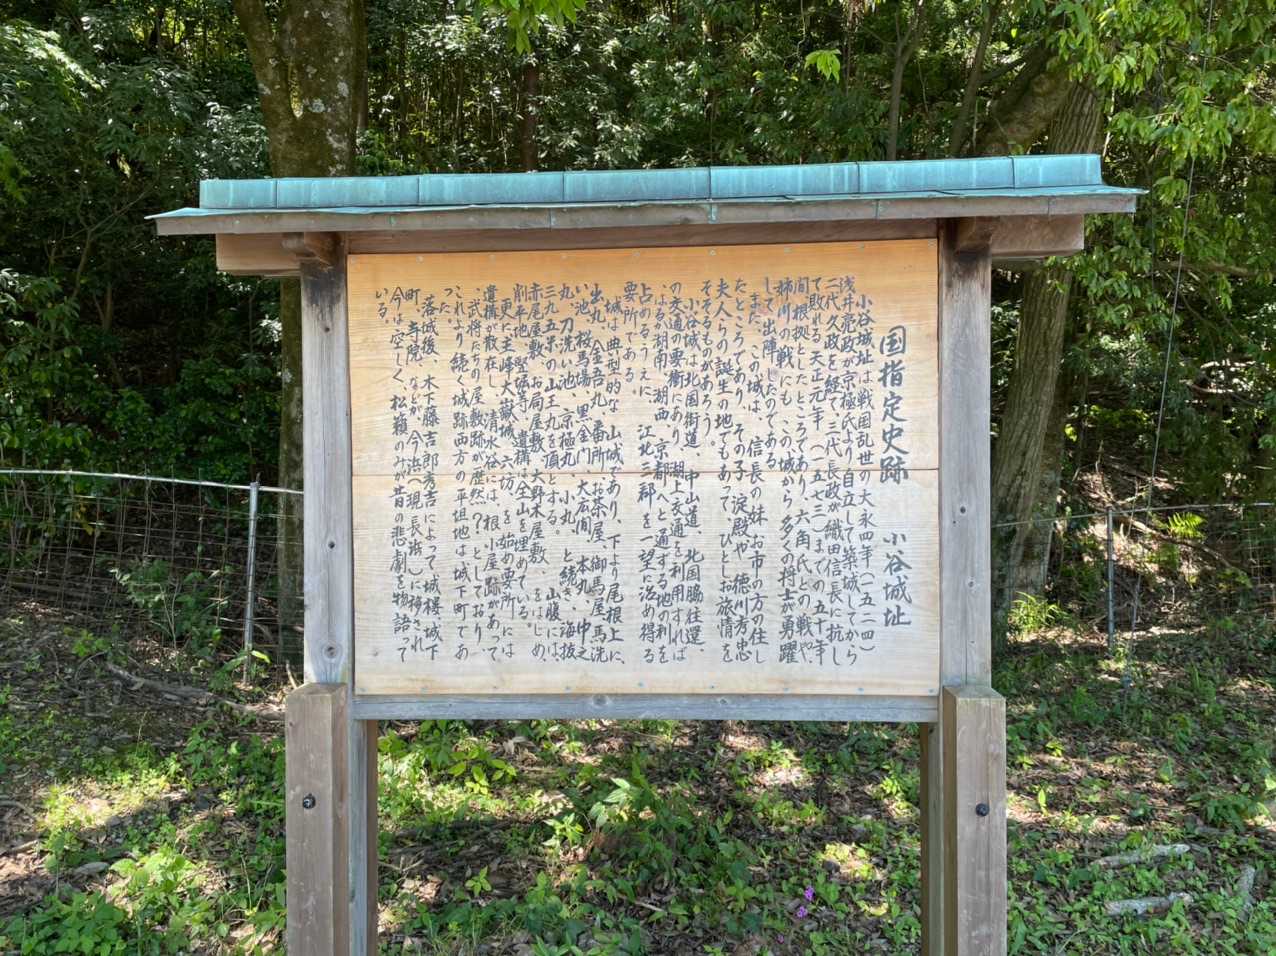 国指定史跡　小谷城址
小谷城址は戦国乱世の大永四年(一五二四)
浅井亮政が京極氏より自立して築城してから
二代久政を経て三代長政が織田信長に抗し
て敗れ天正元年(一五七三)までの五十年
間根拠としたところである。六角氏との戦や、
姉川の戦にもこの城から多くの将士が勇躍
して出陣した
また城は信長の妹お市の方の住し
たところで、その子淀殿や徳川秀忠
夫人らの誕生の地でもあってひとしお旅情を
そそるものがある。
この城は北国街道、中山道、北国脇往還、
の交通の要衝にあり、湖上交通を利用すれば
更に湖南、湖西、京都
占める江北三郡を一望に治め得る
要所である。
城は典型的な山城であり、下より尾根上に、
出丸、金吾丸、番所、お茶屋、御馬屋、馬洗
池、桜馬場、黒金門、大広間、本丸、中
丸、刀洗池、京極丸、小丸と続き、海抜
三九五米の山王丸を頂とする。山腹には、
赤尾屋敷、お局屋敷、大野木屋敷をはじめ、
削平地、遺構全山を埋めている。
更に峰大嶽城、六坊の要所には
遺構が散在し、清水谷には根小屋跡があって
武将屋敷跡が歴然としており、
これより続く城跡西方の平坦地は城下町であっ
た。
落城後、木下藤吉郎秀吉によって城楼、城下
町、寺院など今浜(現長浜)に移されて
今は空しく松籟のみ昔の悲劇を物語って
いる。